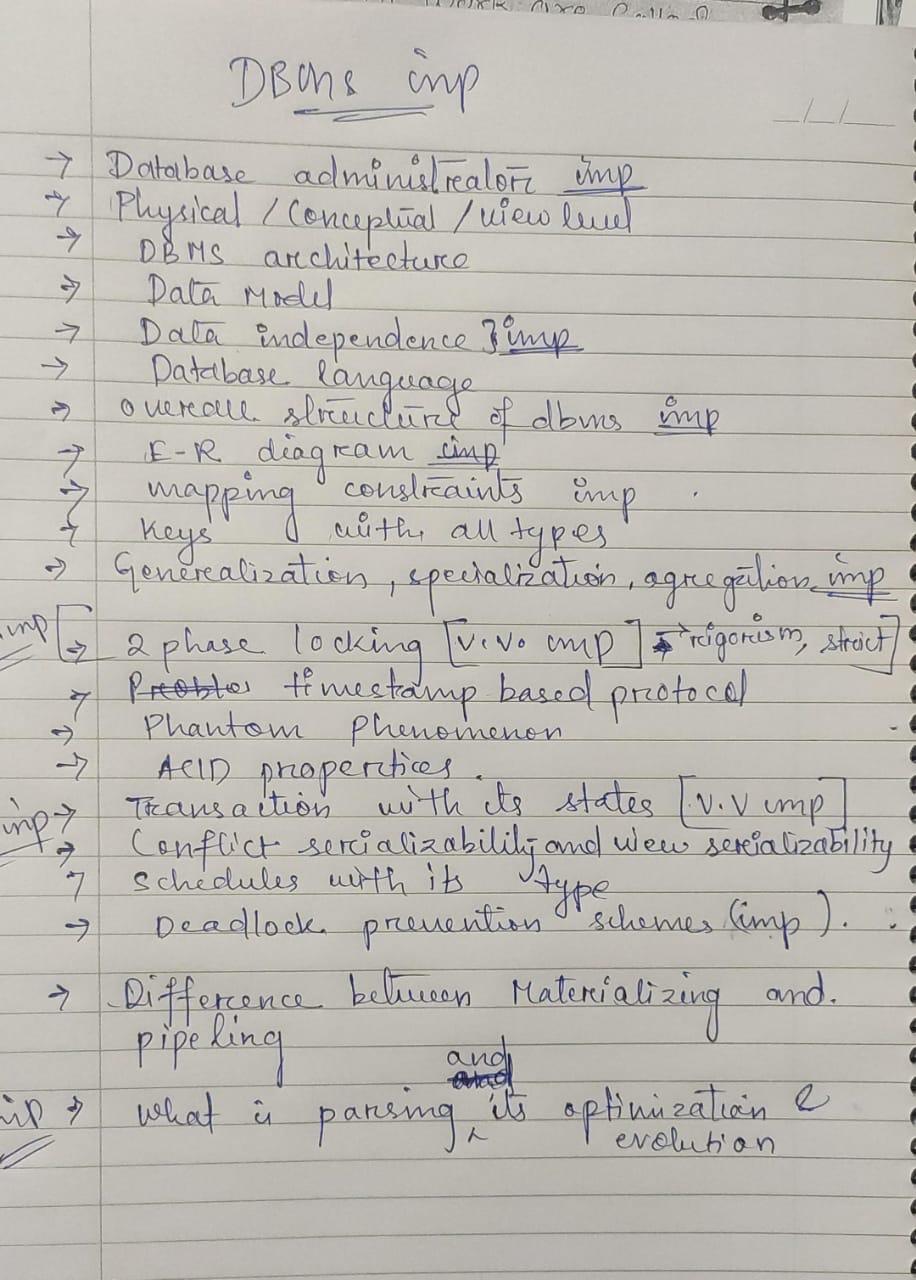 DBMS imp
_/_/_
→ Database administrator imp
→ Physical / Conceptual / view level
→ DBMS architecture
→ Data Model
→ Data independence } imp
→ Database language
→ overall structure of dbms imp
→ E-R diagram imp
→ mapping constraints imp
→ Keys with all types
→ Generealization, specialization, agregation imp
imp [→ 2 phase locking [V.Vo imp] → rigorism, strict]
→ timestamp based protocol
→ Phantom Phenomenon
→ ACID properties.
imp → Transaction with its states [V.V imp]
→ Conflict serializability and view serializability
→ schedules with its type
→ Deadlock prevention schemes (imp).
→ Difference between Materializing and.
pipeling
and
→ what is parsing ^ its optimization &
evolution